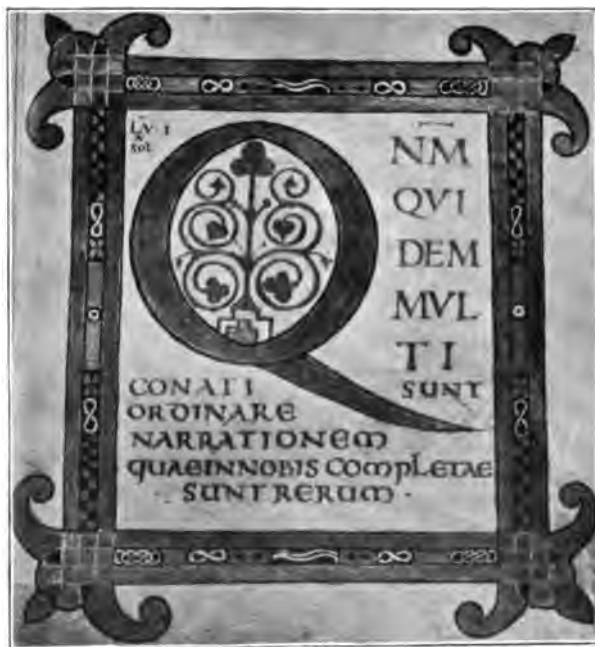 LV · I
sol
QNM
QVI
DEM
MVL
TI
SUNT
CONATI
ORDINARE
NARRATIONEM
QUAEINNOBIS COMPLETAE
· SUNT RERUM ·